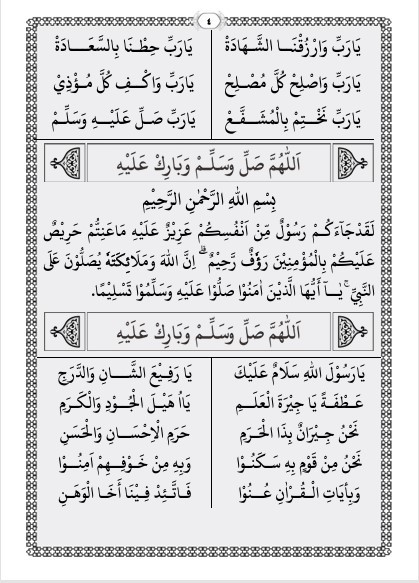 ٤
يَارَبِّ وَارْزُقْنَا الشَّهَادَةْ يَارَبِّ حِطْنَا بِالسَّعَادَةْ
يَارَبِّ وَاصْلِحْ كُلَّ مُصْلِحْ يَارَبِّ وَاكْفِ كُلَّ مُؤْذِيْ
يَارَبِّ نَخْتِمْ بِالْمُشَفَّعْ يَارَبِّ صَلِّ عَلَيْهِ وَسَلِّمْ
اَللّٰهُمَّ صَلِّ وَسَلِّمْ وَبَارِكْ عَلَيْهِ
بِسْمِ اللهِ الرَّحْمٰنِ الرَّحِيْمِ
لَقَدْ جَاءَكُمْ رَسُوْلٌ مِّنْ اَنْفُسِكُمْ عَزِيْزٌ عَلَيْهِ مَاعَنِتُّمْ حَرِيْصٌ
عَلَيْكُمْ بِالْمُؤْمِنِيْنَ رَؤُفٌ رَّحِيْمٌ ۗ اِنَّ اللهَ وَمَلَائِكَتَهٗ يُصَلُّوْنَ عَلَى
النَّبِيِّ ۚ يٰۤا اَيُّهَا الَّذِيْنَ اٰمَنُوْا صَلُّوْا عَلَيْهِ وَسَلِّمُوْا تَسْلِيْمًا.
اَللّٰهُمَّ صَلِّ وَسَلِّمْ وَبَارِكْ عَلَيْهِ
يَارَسُوْلَ اللهِ سَلَامٌ عَلَيْكَ يَا رَفِيْعَ الشَّانِ وَالدَّرَجِ
عَطْفَةً يَا جِيْرَةَ الْعَلَمِ يَااُهَيْلَ الْجُوْدِ وَالْكَرَمِ
نَحْنُ جِيْرَانٌ بِذَا الْحَرَمِ حَرَمِ الْاِحْسَانِ وَالْحَسَنِ
نَحْنُ مِنْ قَوْمٍ بِهِ سَكَنُوْا وَبِهِ مِنْ خَوْفِهِمْ اَمِنُوْا
وَبِاٰيَاتِ الْقُرْاٰنِ عُنُوْا فَاتَّئِدْ فِيْنَا اَخَا الْوَهَنِ